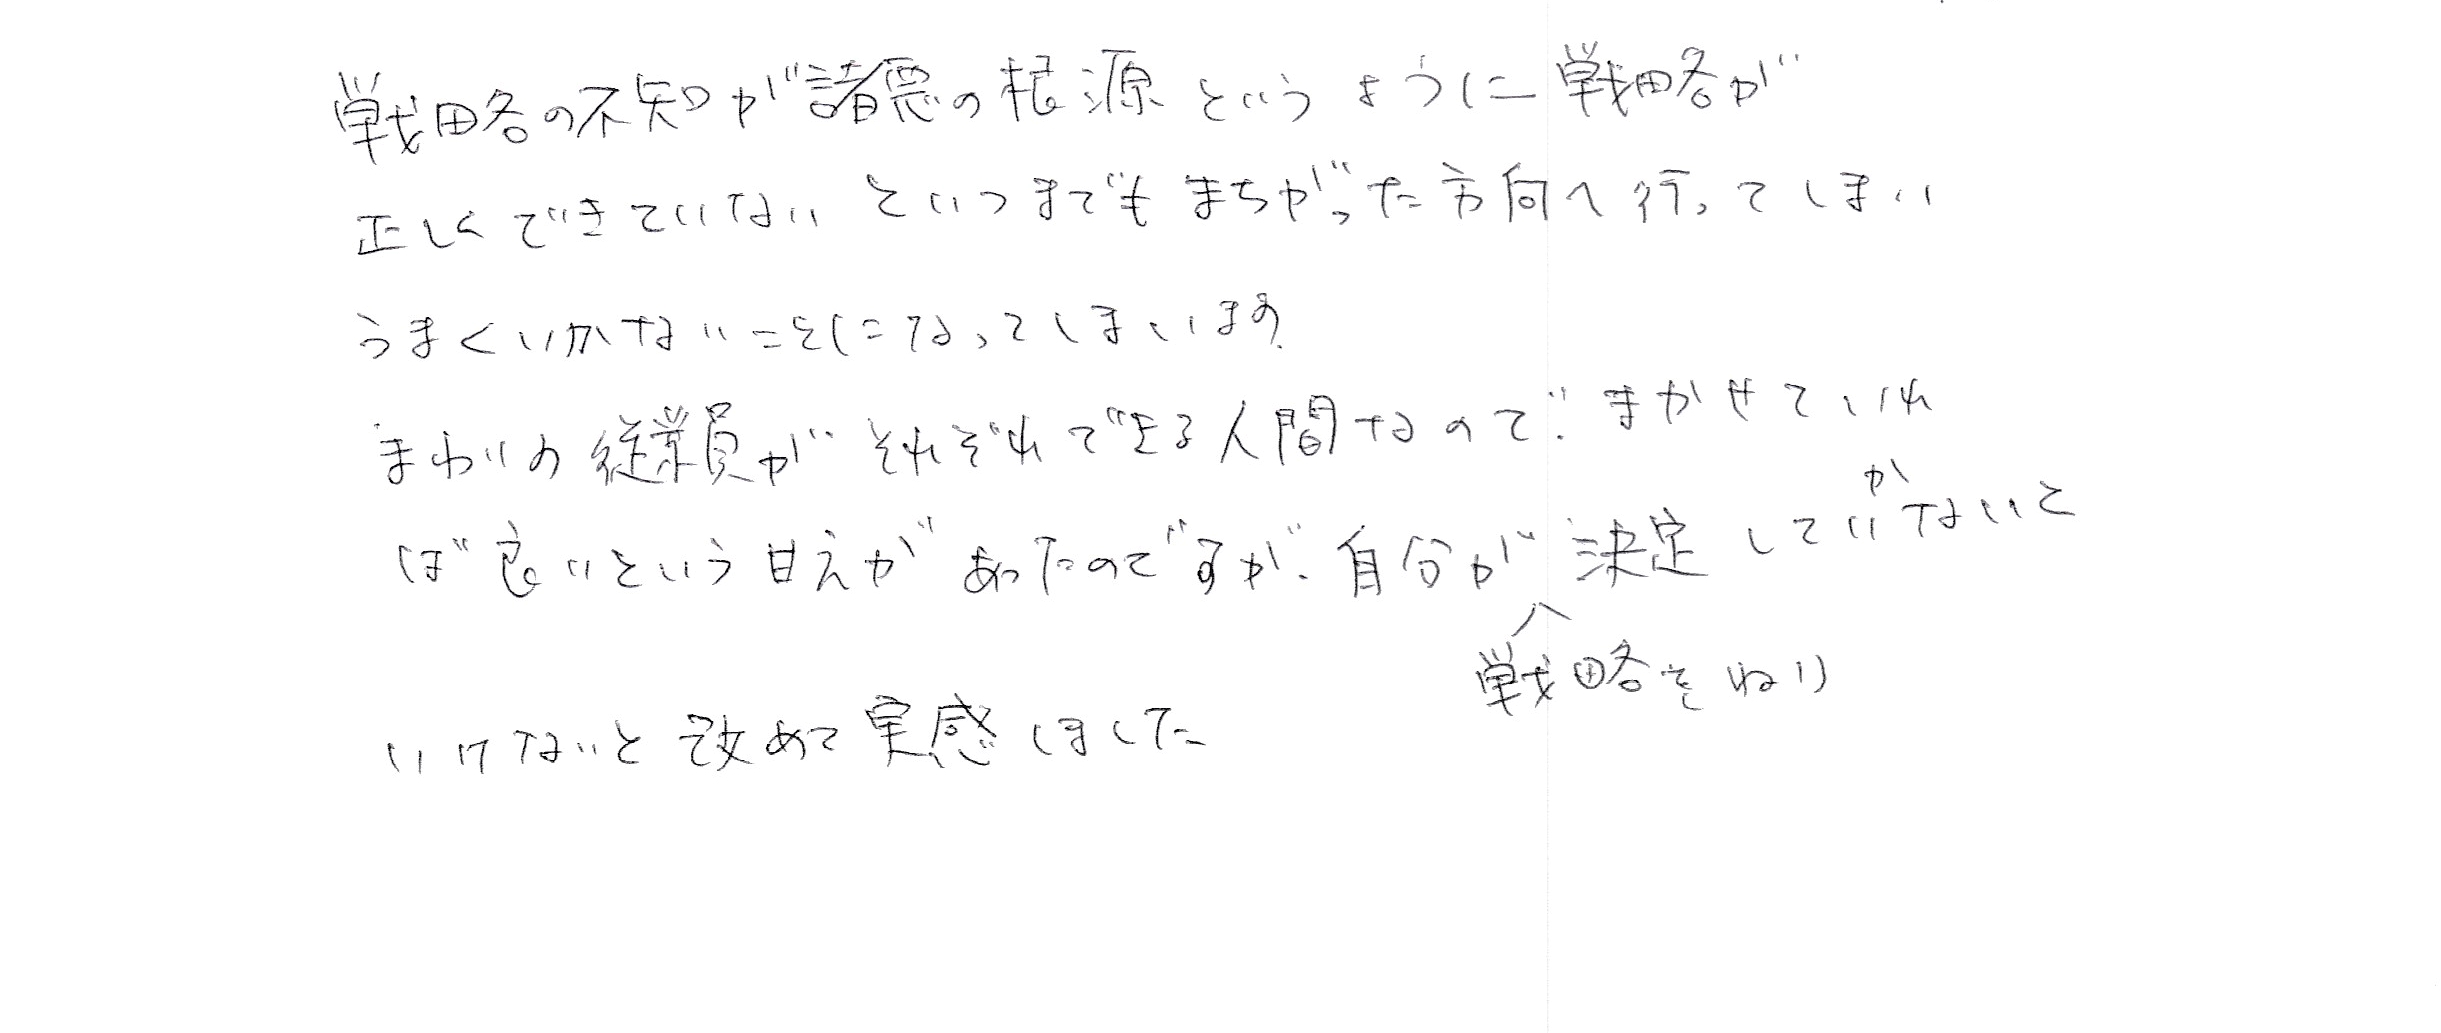 戦略の不知が諸悪の根源というように戦略が
正しくできていないといつまでもまちがった方向へ行ってしまい
うまくいかないことになってしまいます
まわりの従業員がそれぞれできる人間なので、まかせていれ
ば良いという甘えがあったのですが、自分が決定していかないと
戦略をねり
いけないと改めて実感しました